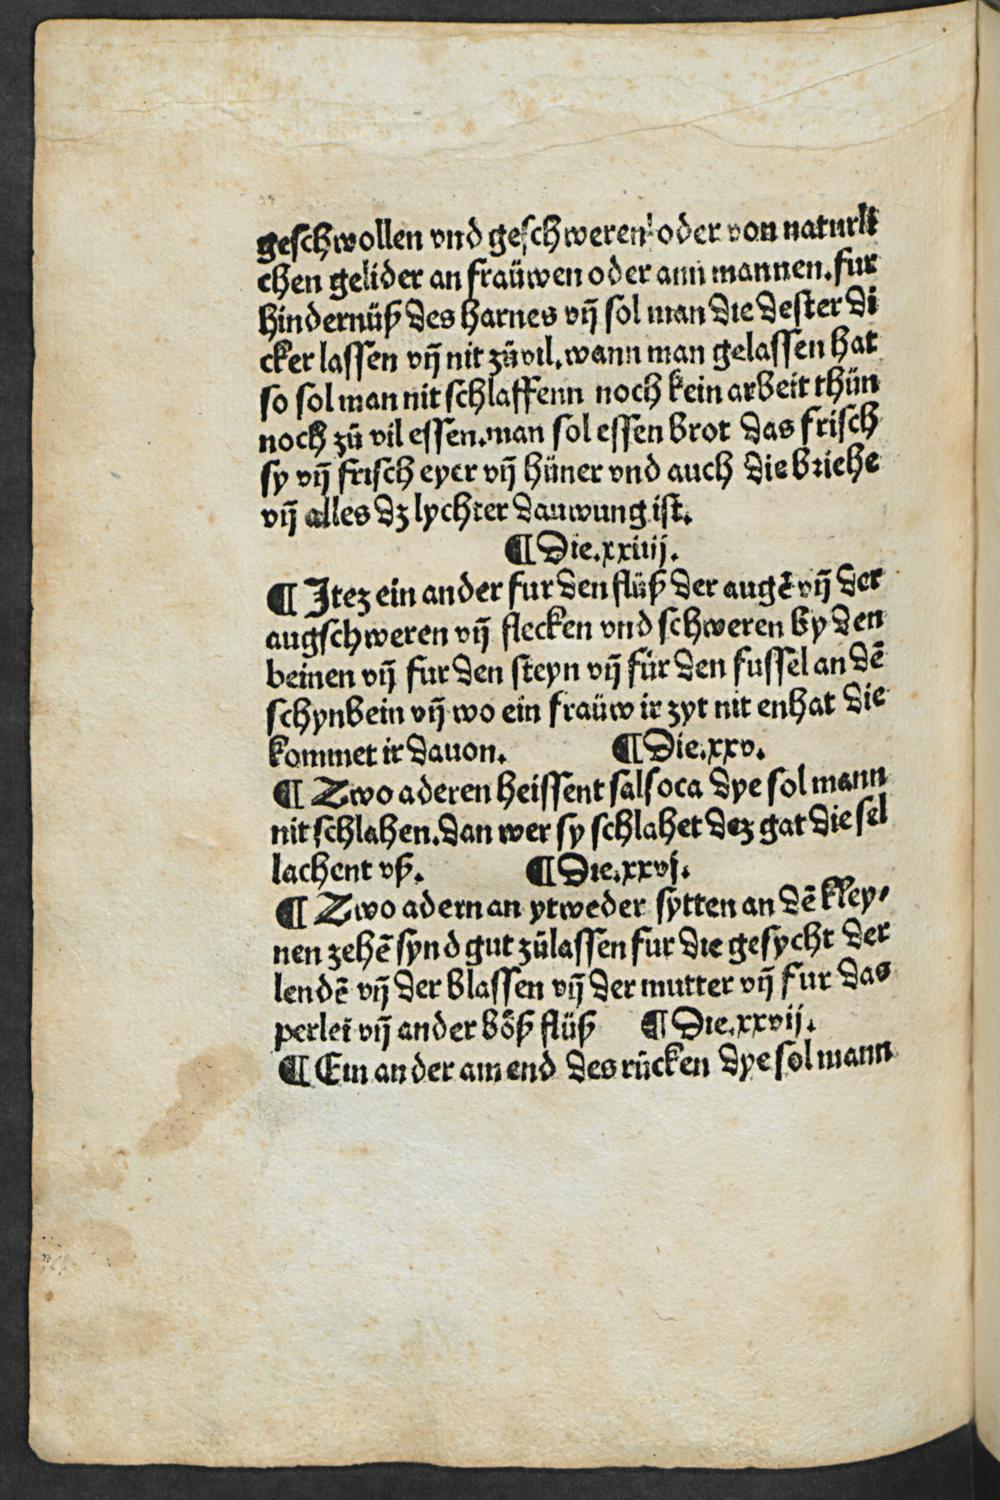 geschwollen vnd geschweren oder von naturli
chen gelider an fraüwen oder ann mannen. fur
hindernüß des harnes vñ sol man die dester di
cker lassen vñ nit zů vil. wann man gelassen hat
so sol man nit schlaffenn noch kein arbeit thůn
noch zů vil essen. man sol essen brot das frisch
sy vñ frisch eyer vñ hüner vnd auch die briehe
vñ alles dz lychter dauwung ist.
¶ Die. xxiiij.
¶ Itez ein ander fur den flüß der augē vñ der
augschweren vñ flecken vnd schweren by den
beinen vñ fur den steyn vñ für den fussel an dē
schynbein vñ wo ein fraüw ir zyt nit enhat die
kommet ir dauon. ¶ Die. xxv.
¶ Zwo aderen heissent salsoca dye sol mann
nit schlahen. dan wer sy schlahet dez gat die sel
lachent vß. ¶ Die. xxvj.
¶ Zwo adern an ytweder sytten an dē kley⸗
nen zehē synd gut zůlassen fur die gesycht der
lendē vñ der blassen vñ der mutter vñ fur das
perlei vñ ander bőß flüß ¶ Die. xxvij.
¶ Ein ander am end des rücken dye sol mann